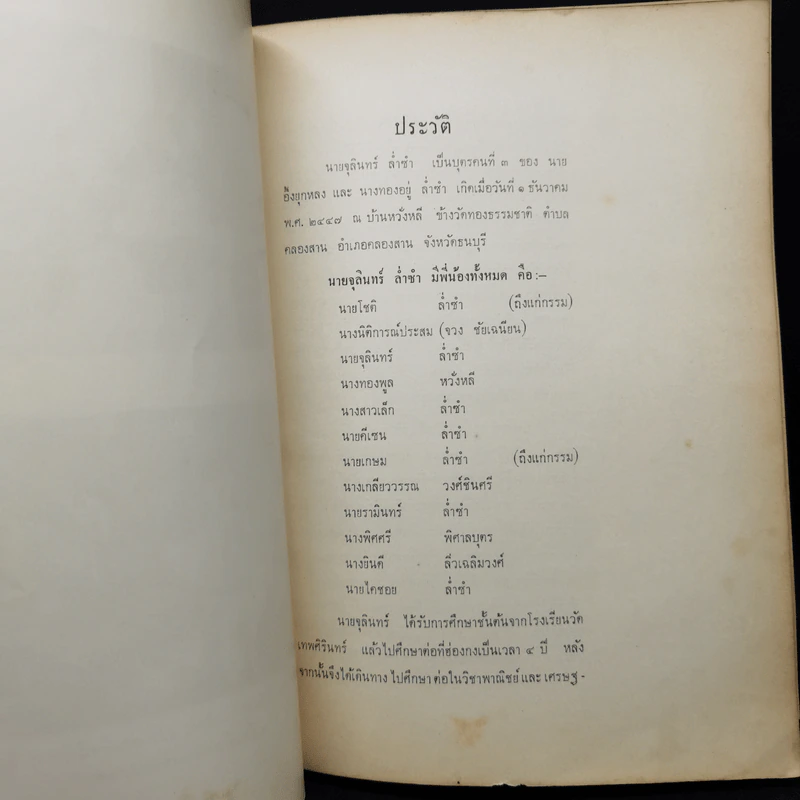 ประวัติ
นายจุลินทร์ ล่ำซำ เป็นบุตรคนที่ ๓ ของ นาย
อึ้งยุกหลง และ นางทองอยู่ ล่ำซำ เกิดเมื่อวันที่ ๑ ธันวาคม
พ.ศ. ๒๔๔๗ ณ บ้านหวั่งหลี ข้างวัดทองธรรมชาติ ตำบล
คลองสาน อำเภอคลองสาน จังหวัดธนบุรี
นายจุลินทร์ ล่ำซำ มีพี่น้องทั้งหมด คือ :–
นายโชติ ล่ำซำ (ถึงแก่กรรม)
นางนิติการณ์ประสม (จวง ชัยเฉนียน)
นายจุลินทร์ ล่ำซำ
นางทองพูล หวั่งหลี
นางสาวเล็ก ล่ำซำ
นายคีเซน ล่ำซำ
นายเกษม ล่ำซำ (ถึงแก่กรรม)
นางเกลียววรรณ วงศ์ชินศรี
นายรามินทร์ ล่ำซำ
นางพิศศรี พิศาลบุตร
นางยินดี ลิ่วเฉลิมวงศ์
นายไคชอย ล่ำซำ
นายจุลินทร์ ได้รับการศึกษาชั้นต้นจากโรงเรียนวัด
เทพศิรินทร์ แล้วไปศึกษาต่อที่ฮ่องกงเป็นเวลา ๔ ปี หลัง
จากนั้นจึงได้เดินทาง ไปศึกษา ต่อในวิชาพาณิชย์ และ เศรษฐ -